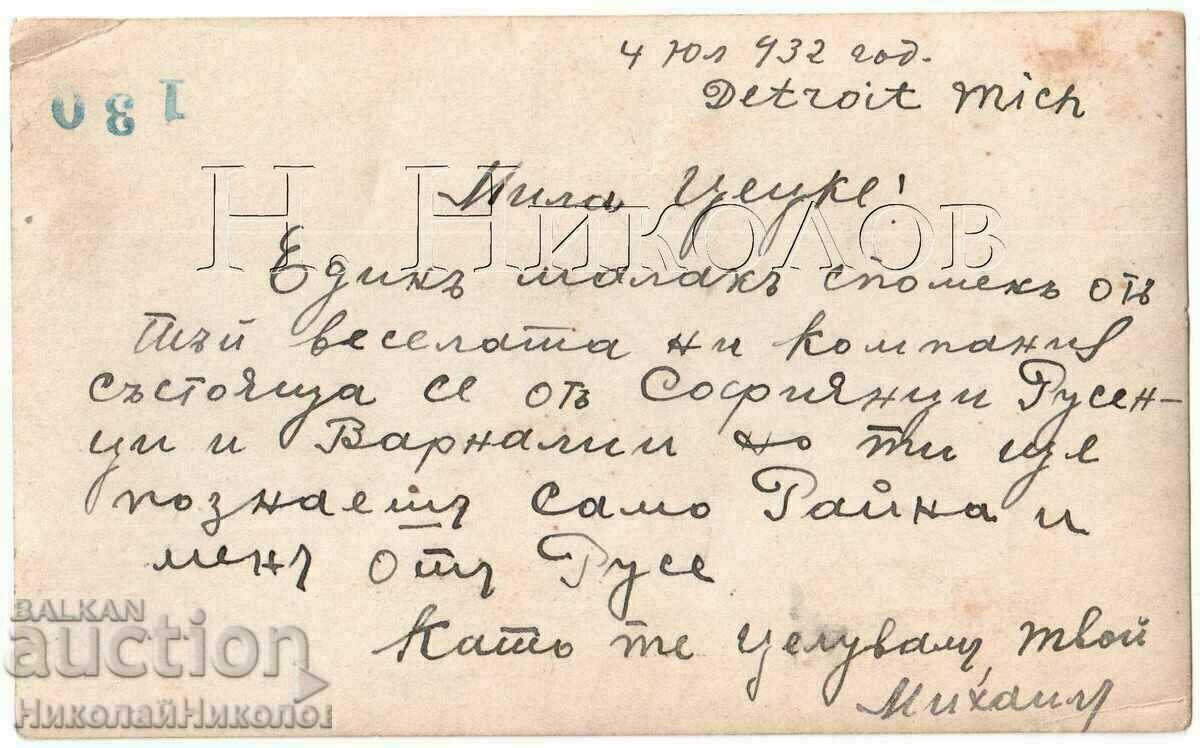 4 Юл 932 год.
Detroit Mich
130
Мила Цецке!
Н. Николов
Единъ малакъ споменъ отъ
тъй веселата ни компания
състояща се отъ Софиянци Русен-
ци и Варналии но ти ще
познаешъ само Райна и
менъ отъ Русе
Като те целувамъ твой
Михаилъ
BALKAN
auction
НиколайНиколов